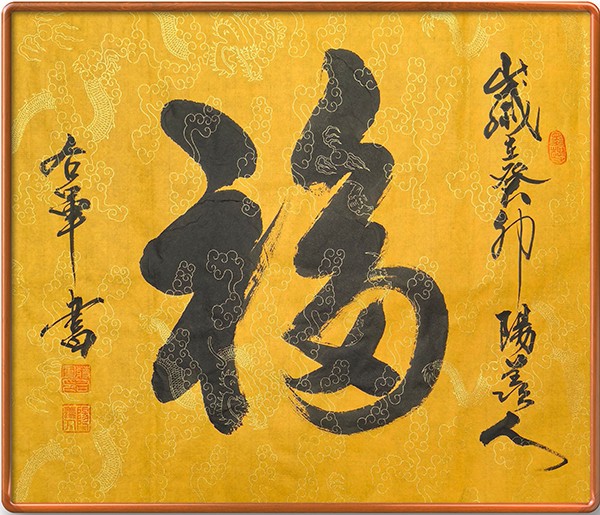 歲在癸卯陽羨人
福
軍書